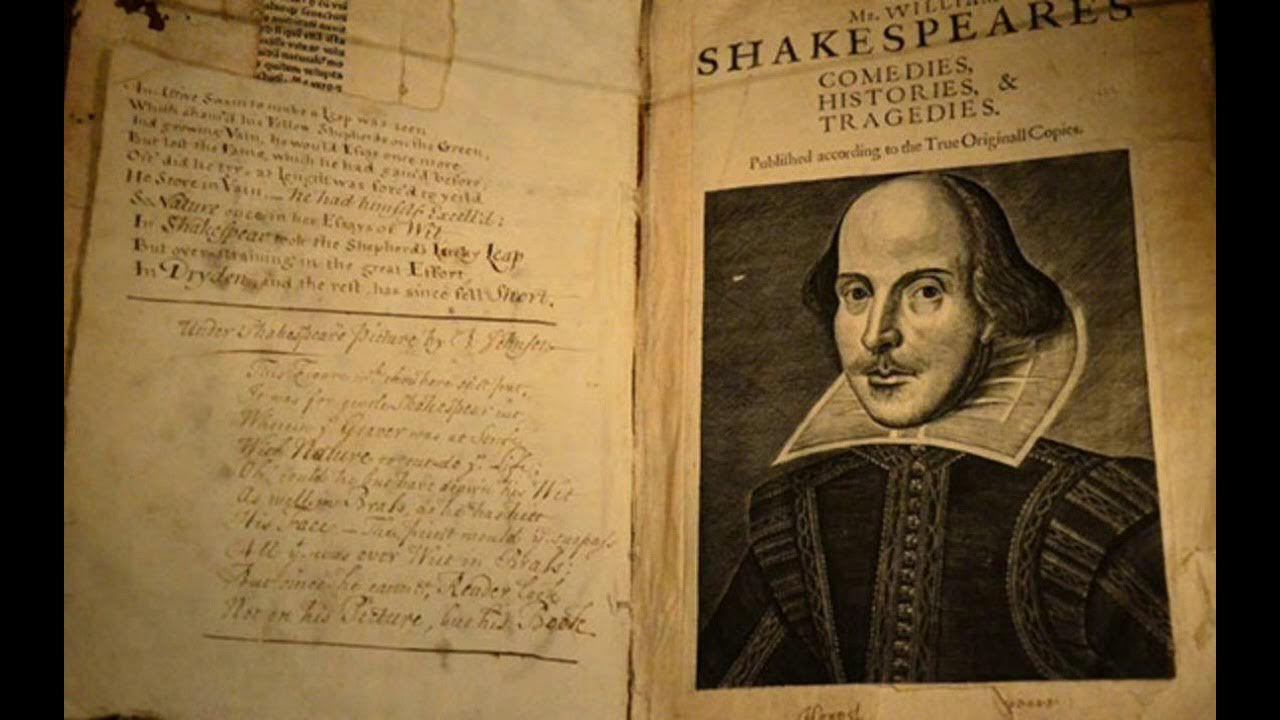 An Active Swain to make a Leap was seen
Which sham'd his Fellow Shepherds on the Green,
And growing Vain, he would Essay once more
But lost the Fame, which he had gain'd before;
Oft' did he try, at Length was forc'd to yeild
He Strove in Vain, — he had himself Excell'd:
So Nature once in her Essays of Wit
In Shakespear took the Shepherd's Lucky Leap
But over-straining in the great Effort,
In Dryden, and the rest, has since fell Short.
Under Shakespears Picture by Johnson
This Figure thou here seest put,
It was for gentle Shakespear cut
Wherein yͤ Graver was at Strife
With Nature to outdo yͤ Life;
Oh, could he but have drawn his Wit
As well in Brass, as he has hitt
His Face — The Print would surpass
All yͭ was ever Writ in Brass;
But since he cannot, Reader look
Not on his Picture, but his Book
Mr. WILLIAM
SHAKESPEARES
COMEDIES,
HISTORIES, &
TRAGEDIES.
Publiſhed according to the True Originall Copies.